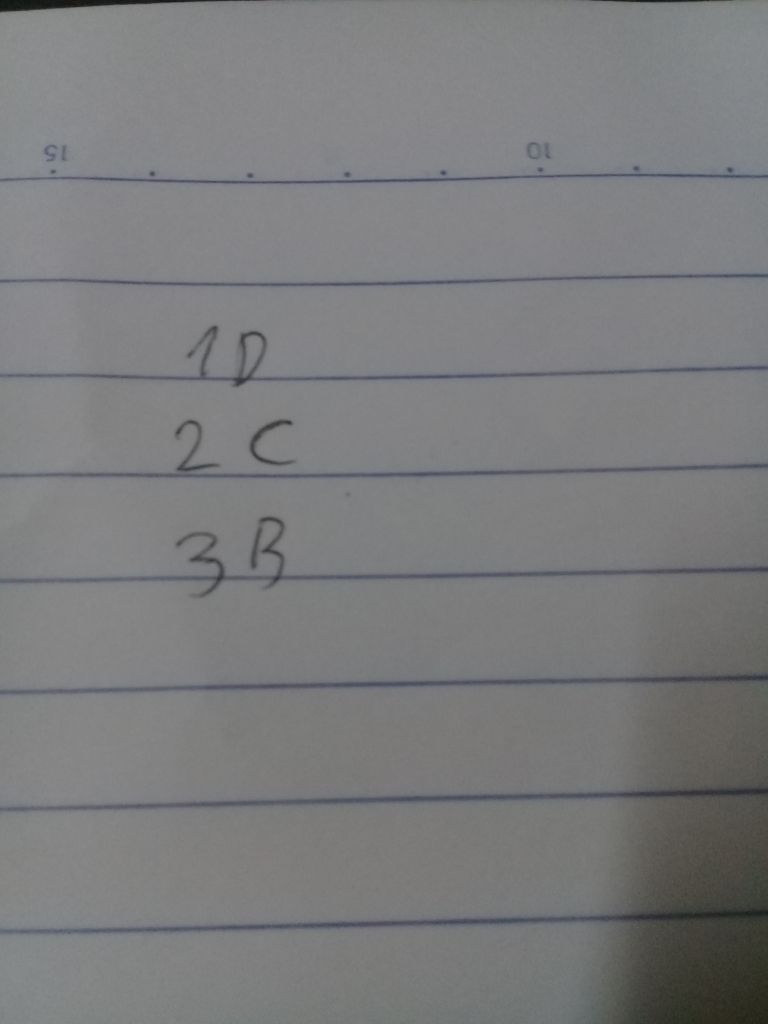 15 10
1 D
2 C
3 B